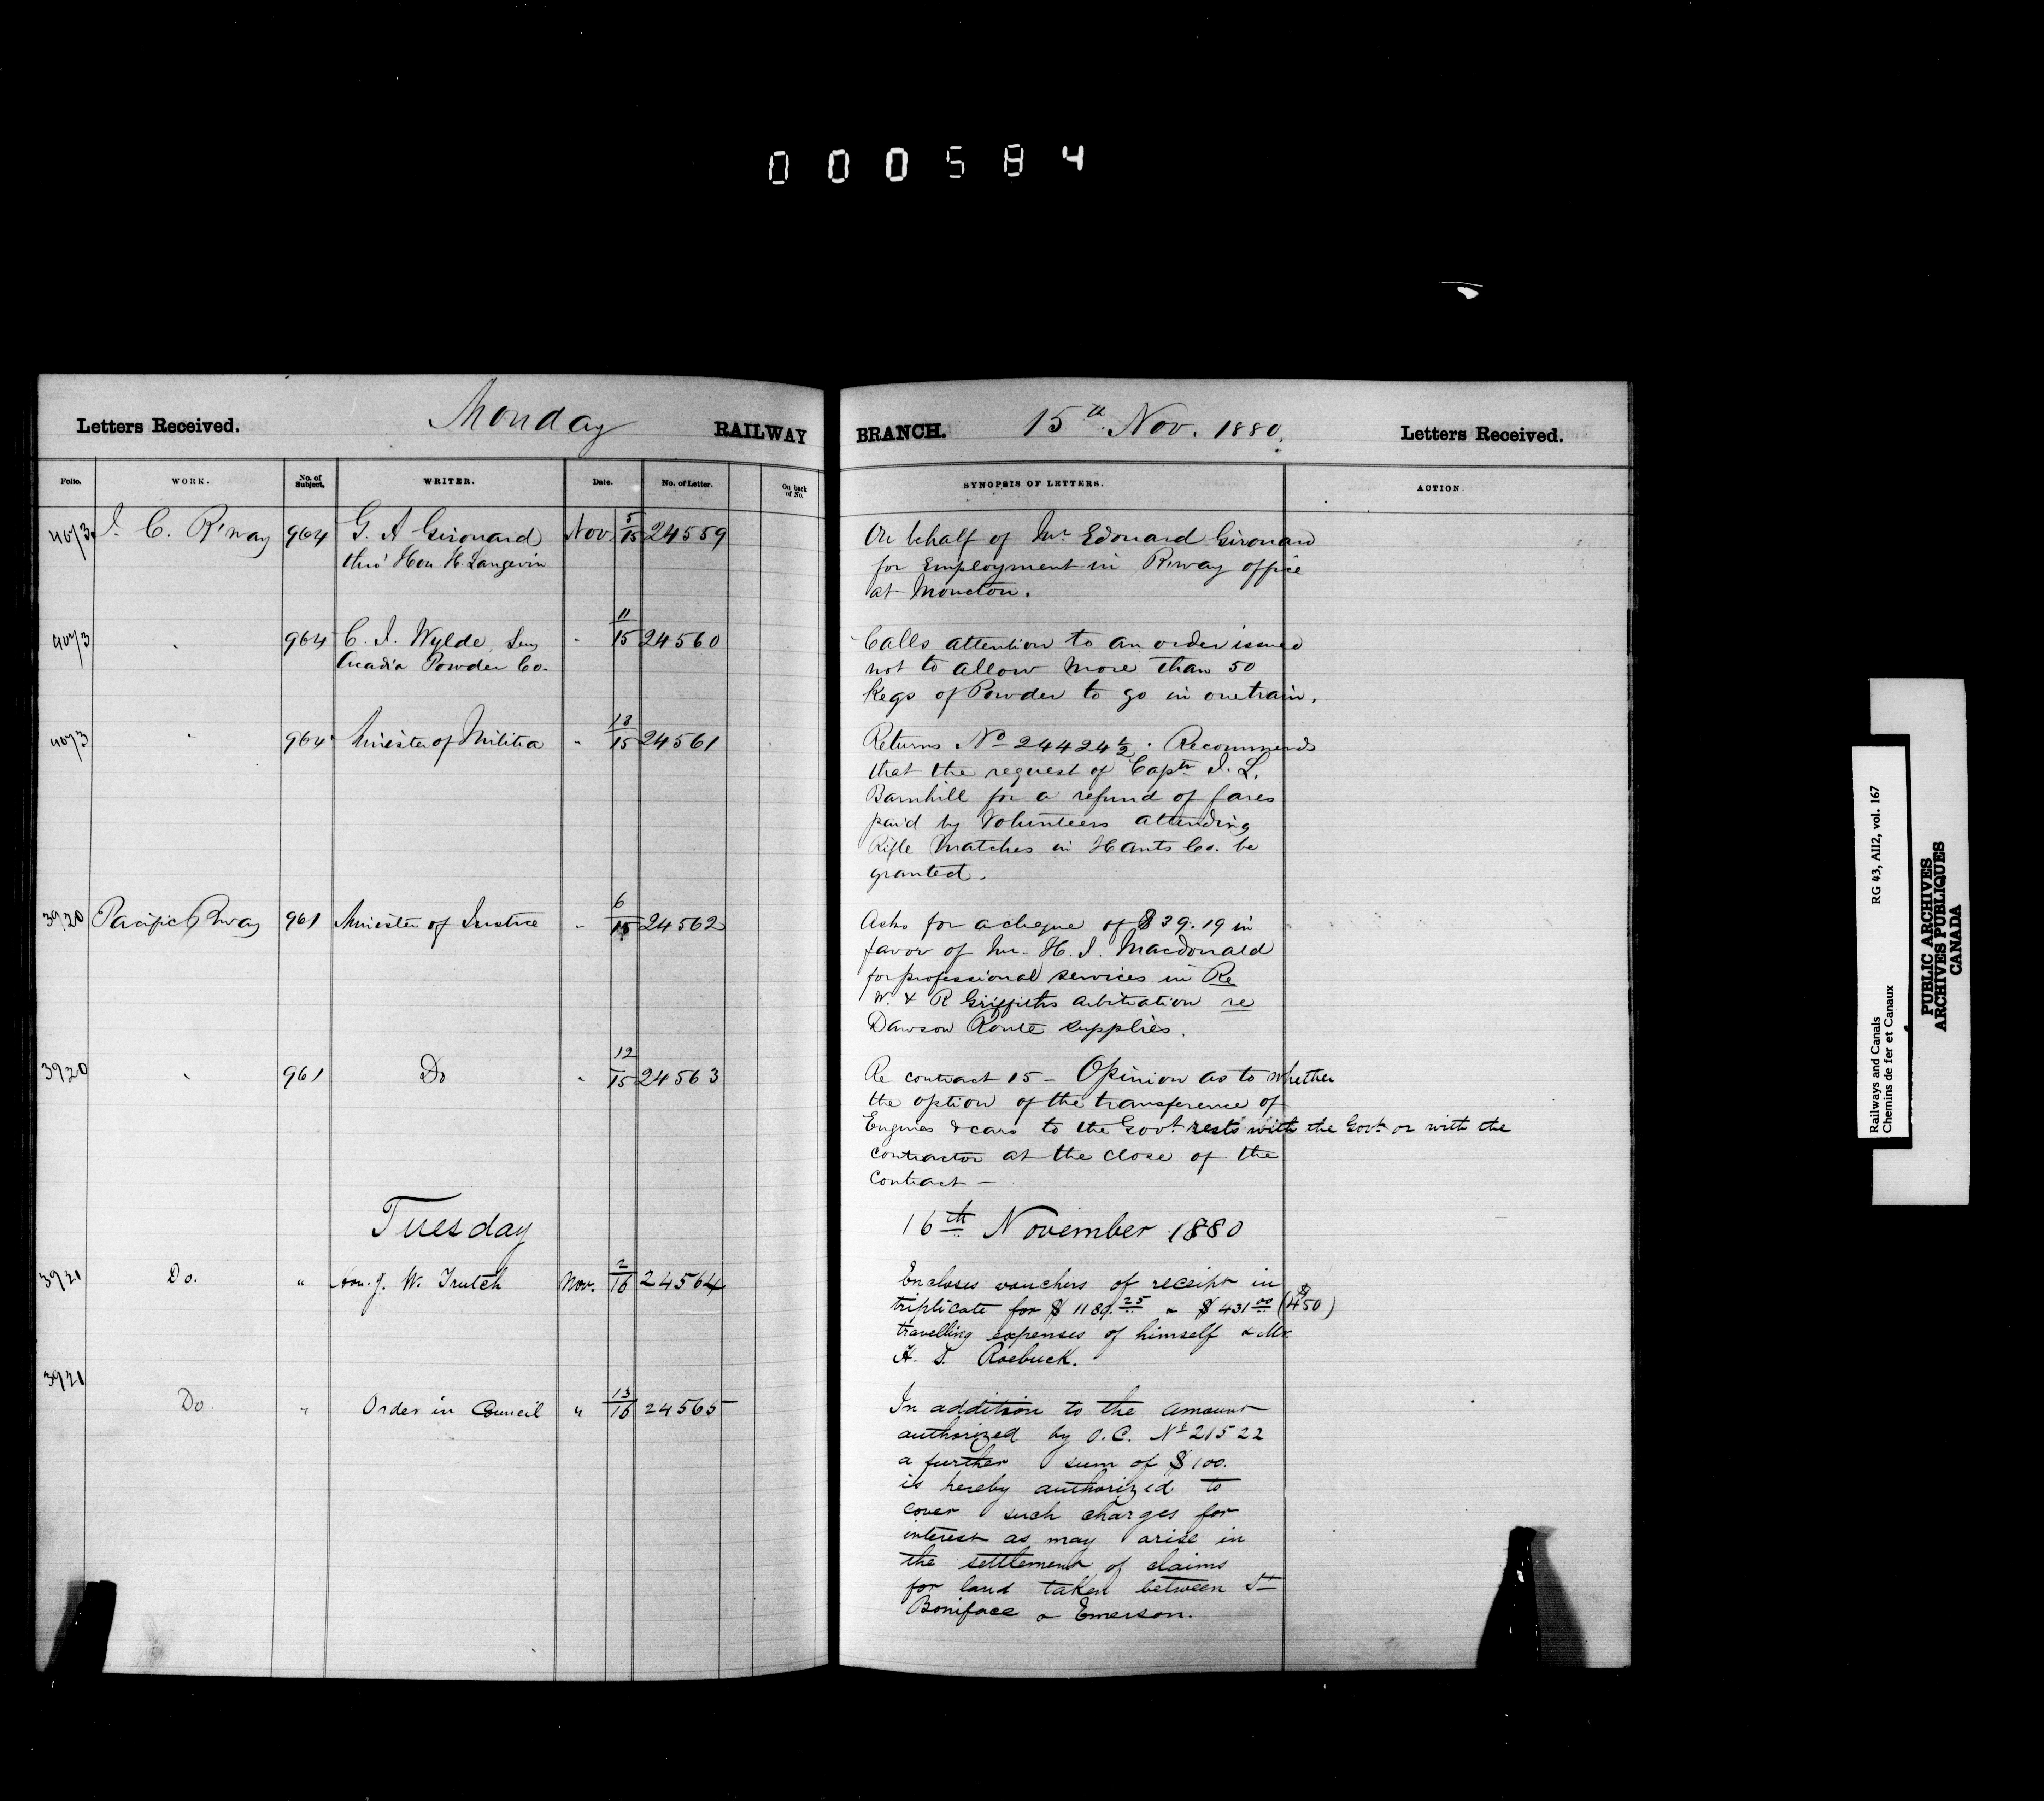 000584
Letters Received. Monday RAILWAY BRANCH. 15th Nov. 1880. Letters Received.
Folio. WORK. No. of Subject. WRITER. Date. No. of Letter. On back of No. SYNOPSIS OF LETTERS. ACTION.
4073 I. C. R'way 964 G. A Girouard Nov. 5/15 24559 On behalf of Mr Edouard Girouard
thro' Hon H. Langevin for Employment in R'way office
at Moncton.
4073 " 964 C. J. Wylde, Secy " 11/15 24560 Calls attention to an order issued
Acadia Powder Co. not to allow more than 50
Kegs of Powder to go in one train.
4073 " 964 Minister of Militia " 13/15 24561 Returns No 24424½. Recommends
that the request of Captn J. L.
Barnhill for a refund of fares
paid by Volunteers attending
Rifle Matches in Hants Co. be
granted.
3920 Pacific R'way 961 Minister of Justice " 6/15 24562 Asks for a cheque of $39.19 in
favor of Mr. H. J. Macdonald
for professional services in Re
W. & R Griffiths arbitration re
Dawson Route supplies.
3920 " 961 Do " 12/15 24563 Re contract 15 - Opinion as to whether
the option of the transference of
Engines & cars to the Govt. rests with the Govt. or with the
contractor at the close of the
contract -
Tuesday 16th November 1880
3921 Do. " Hon. J. W. Trutch Nov. 2/16 24564 Encloses vouchers of receipt in
triplicate for $1189.25 & $431.00 ($450)
travelling expenses of himself & Mr.
H. S. Roebuck.
3921 Do. " Order in Council " 13/16 24565 In addition to the amount
authorized by O.C. No 21522
a further sum of $100.
is hereby authorized to
cover such charges for
interest as may arise in
the settlement of claims
for land taken between St
Boniface & Emerson.
Railways and Canals RG 43, AII2, vol. 167
Chemins de fer et Canaux
PUBLIC ARCHIVES
ARCHIVES PUBLIQUES
CANADA